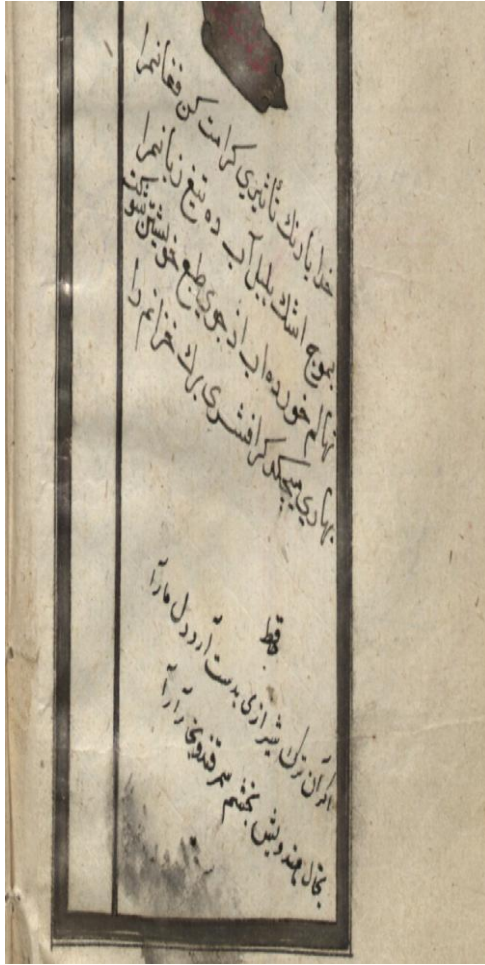 خدایا رنک تأثیری کرامت کن فغانمرا
بموج اشک بلبل آب ده تیغ زبانمرا
نهالم خورده اب از جوی طبع خویشتن
بهاری میچکد کر افشری برک خزانم را
حافظ
اکر آن ترک شیرازی بدست آرد دل مارا
بخال هندویش بخشم سمرقند و بخارارا